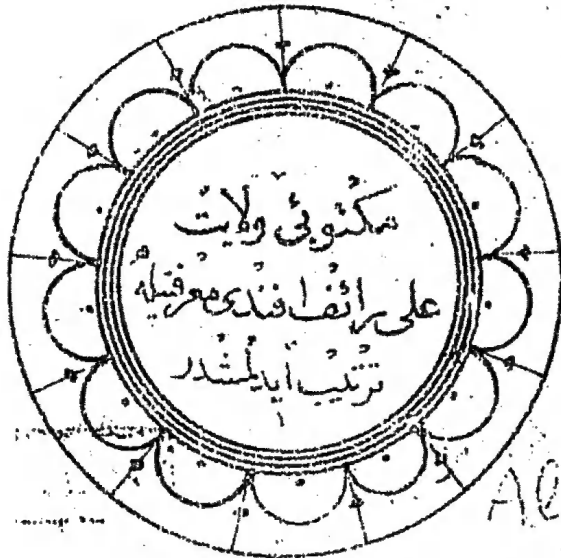 مكتوبئ ولايت
على رائف افندى معرفتيله
ترتيب ايدلمشدر
١